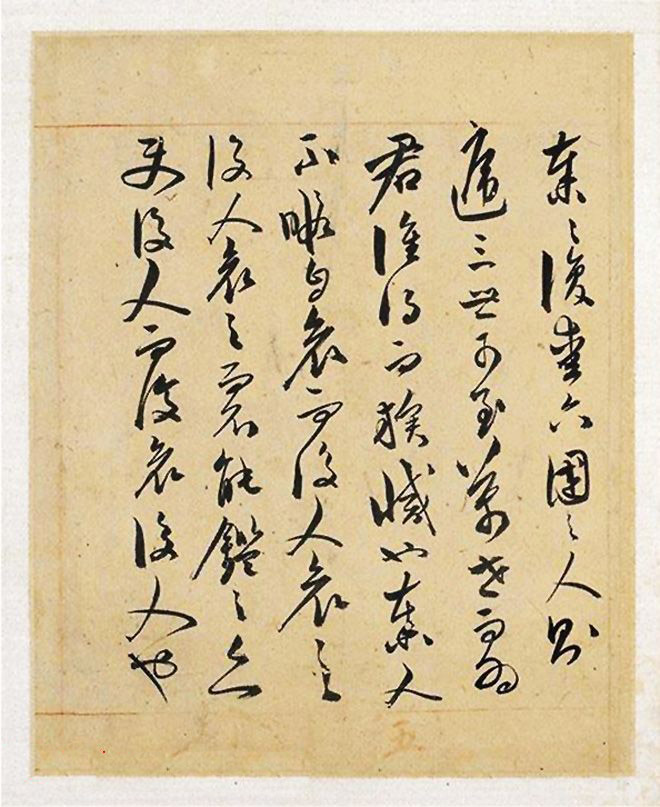 秦之復愛六國之人則
遞三世可至萬世而為
君誰得而族滅也秦人
不暇自哀而後人哀之
後人哀之而不能鑑之亦
使後人而復哀後人也